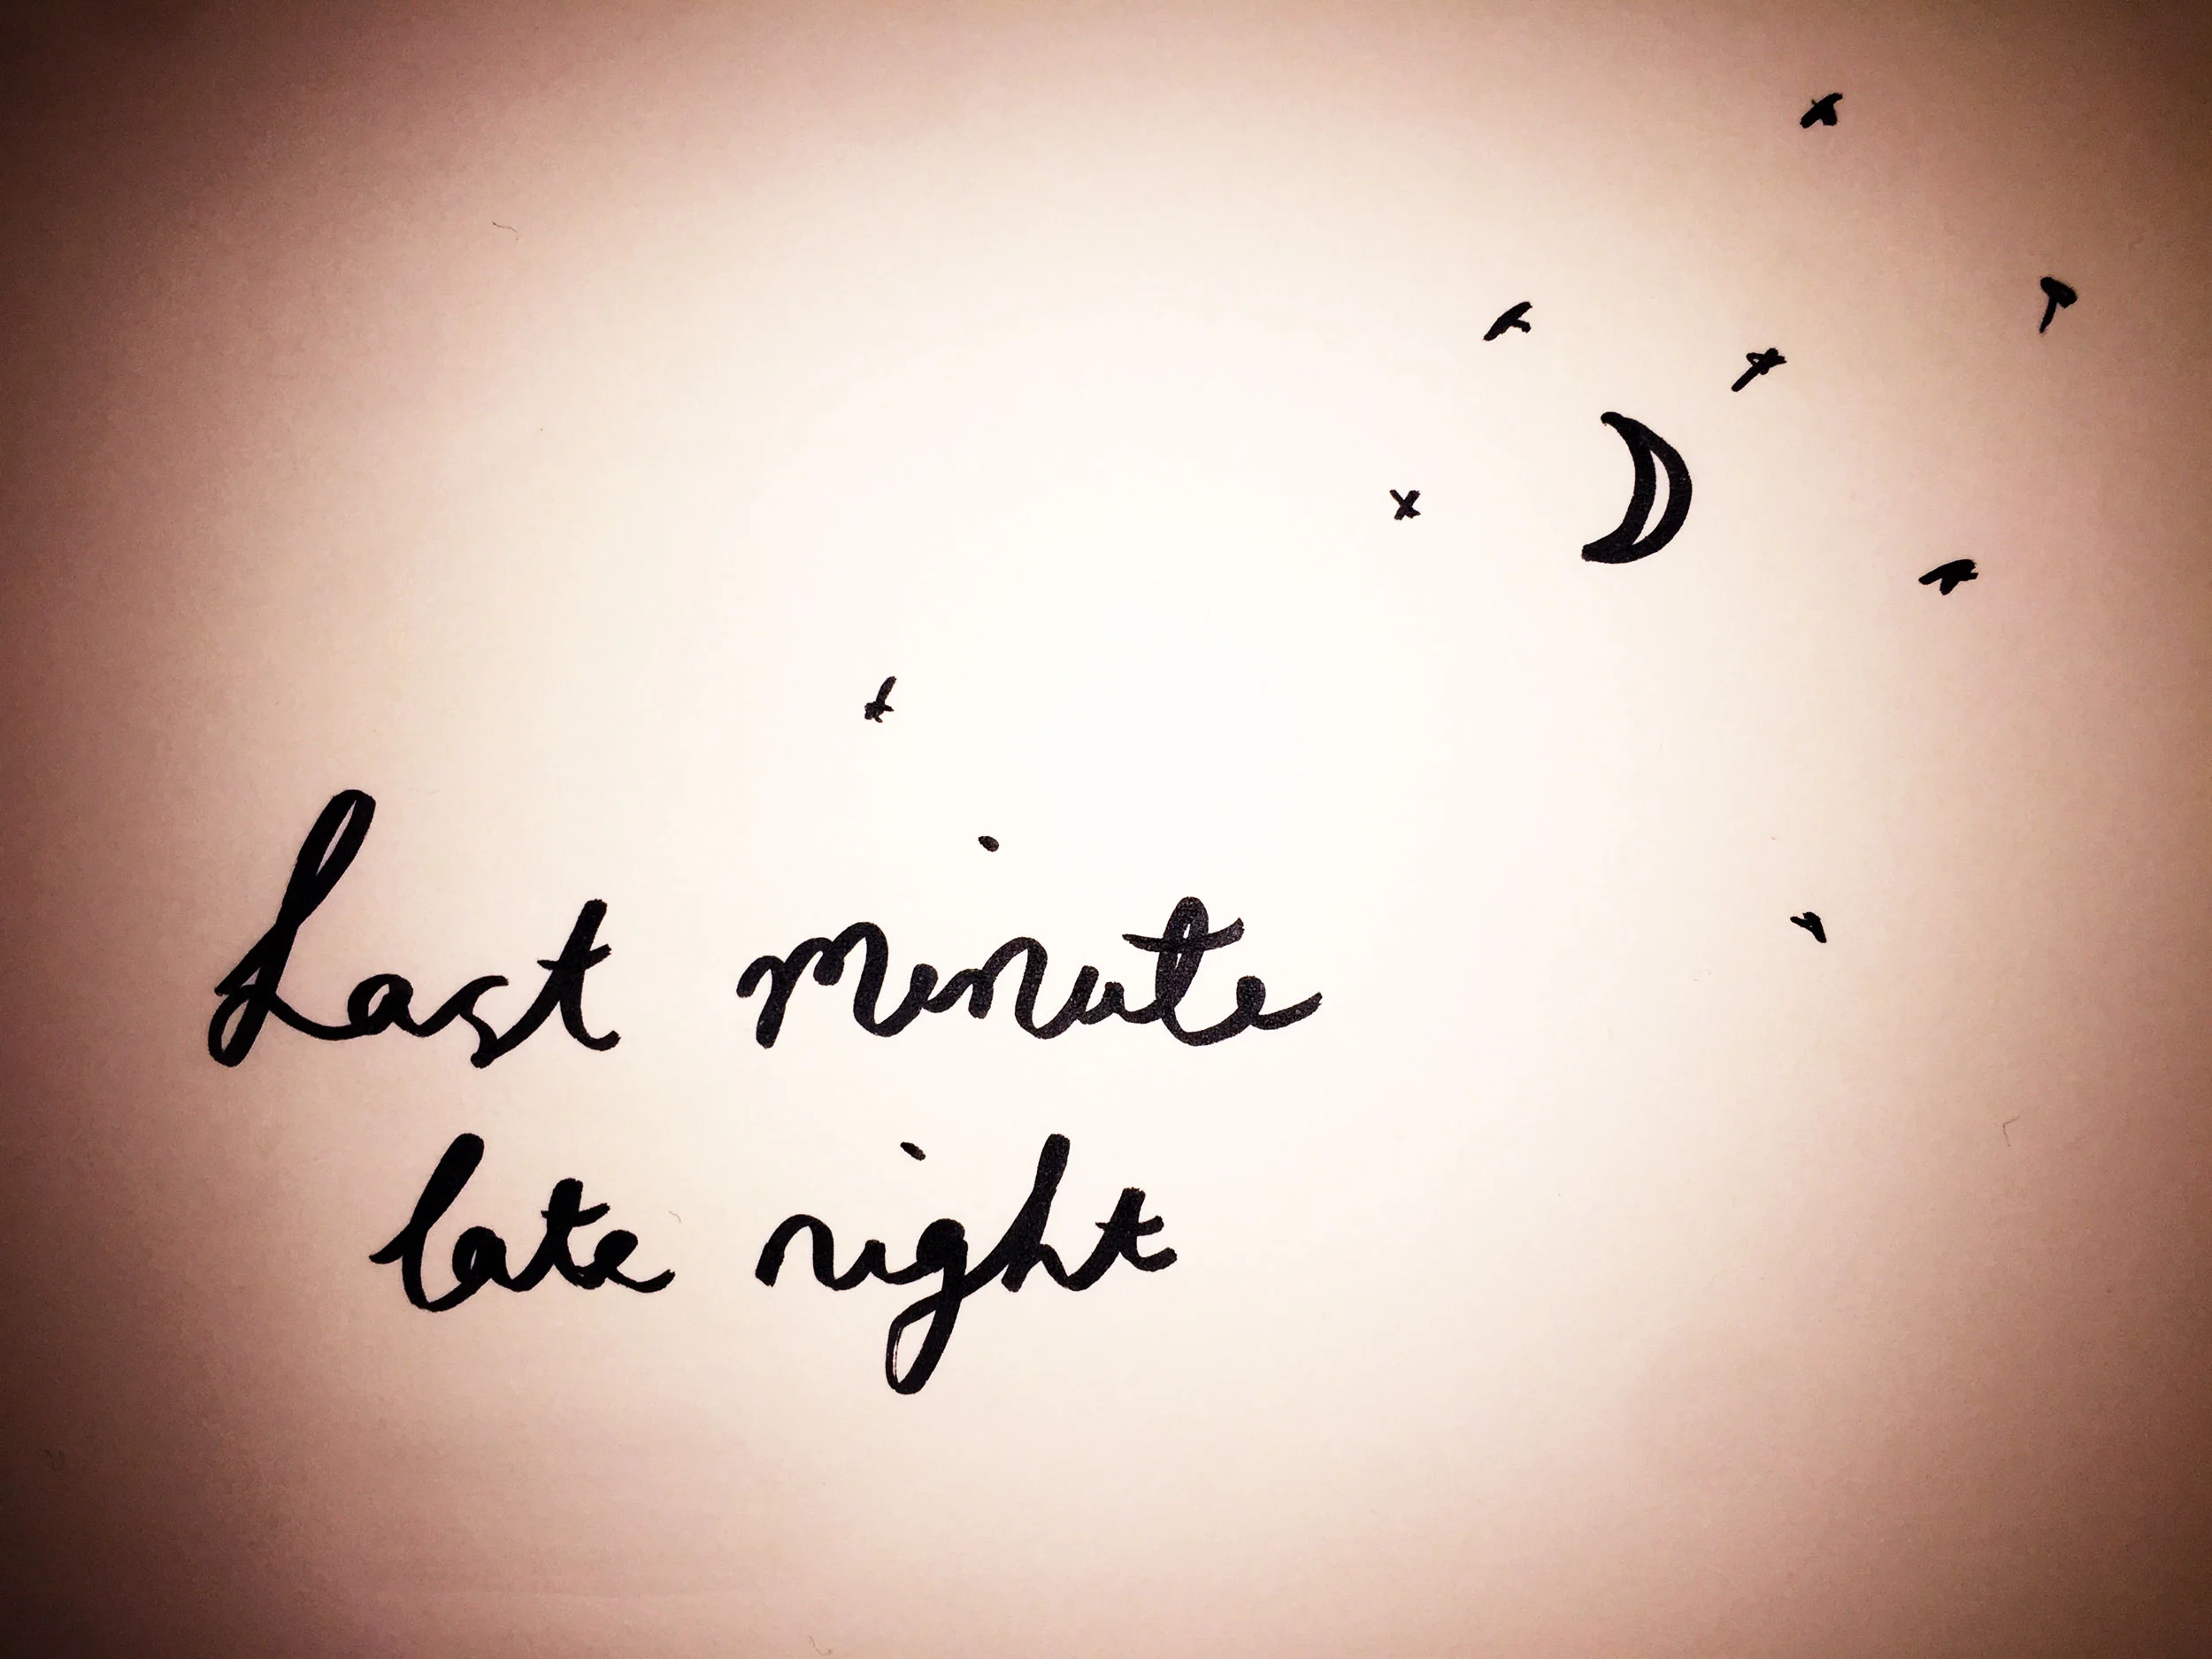 Last minute
late night